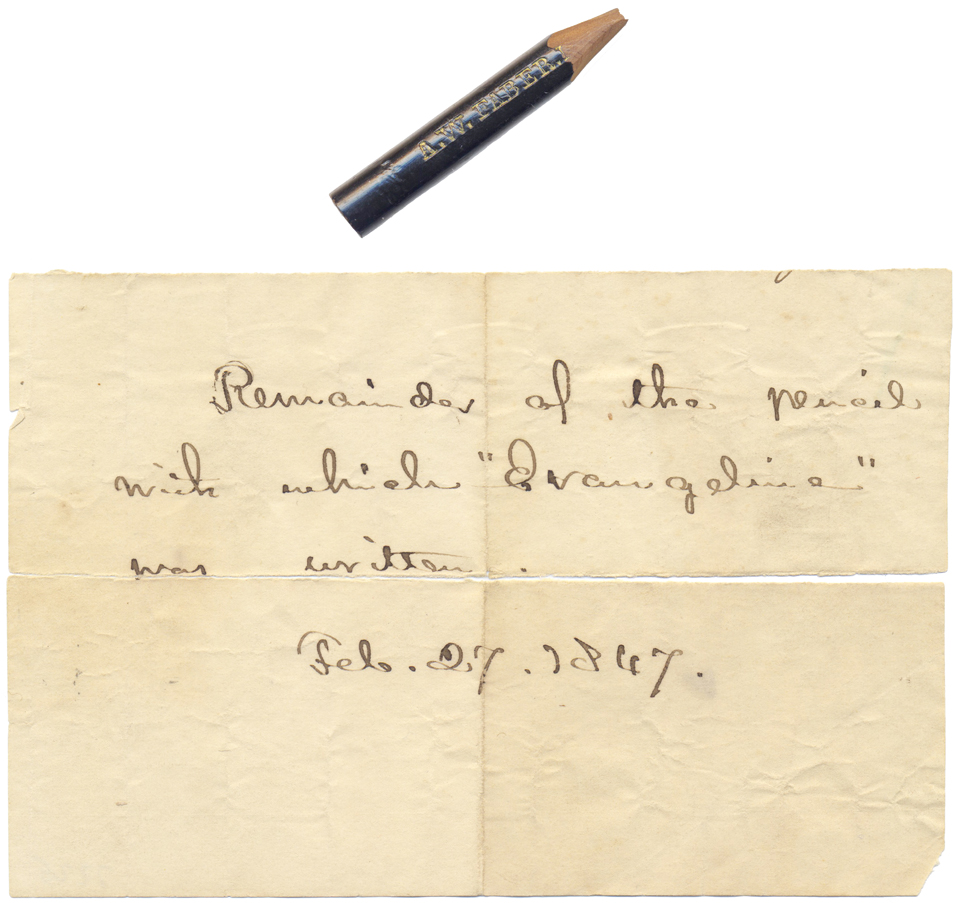 A.W. FABER.
Remainder of the pencil
with which "Evangeline"
was written.
Feb. 27. 1847.